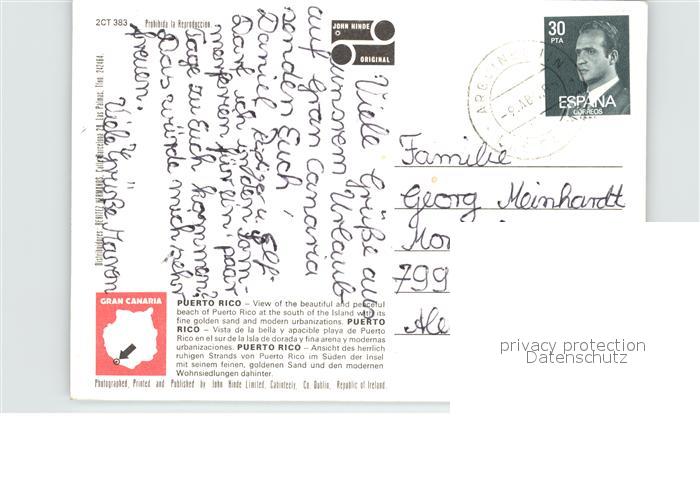 2CT 383
Prohibida la Reproduccion.
JOHN HINDE
ORIGINAL
30
PTA
ESPAÑA
CORREOS
Distribuidores: BENITEZ HERMANOS. Calle Barcelona 20. Las Palmas. Tfno. 242464.
Viele Grüße aus
unserem Urlaub
auf Gran Canaria
senden Euch
Daniel, u.
Darf ich in den
für ein paar
Tage zu Euch kommen?
Das würde mich sehr
freuen.
Viele Grüße
Familie
Georg Meinhardt
Mor
799
Ale
privacy protection
Datenschutz
GRAN CANARIA
PUERTO RICO – View of the beautiful and peaceful
beach of Puerto Rico at the south of the Island with its
fine golden sand and modern urbanizations. PUERTO
RICO – Vista de la bella y apacible playa de Puerto
Rico en el sur de la Isla de dorada y fina arena y modernas
urbanizaciones. PUERTO RICO – Ansicht des herrlich
ruhigen Strands von Puerto Rico im Süden der Insel
mit seinem feinen, goldenen Sand und den modernen
Wohnsiedlungen dahinter.
Photographed, Printed and Published by John Hinde Limited, Cabinteely, Co. Dublin, Republic of Ireland.